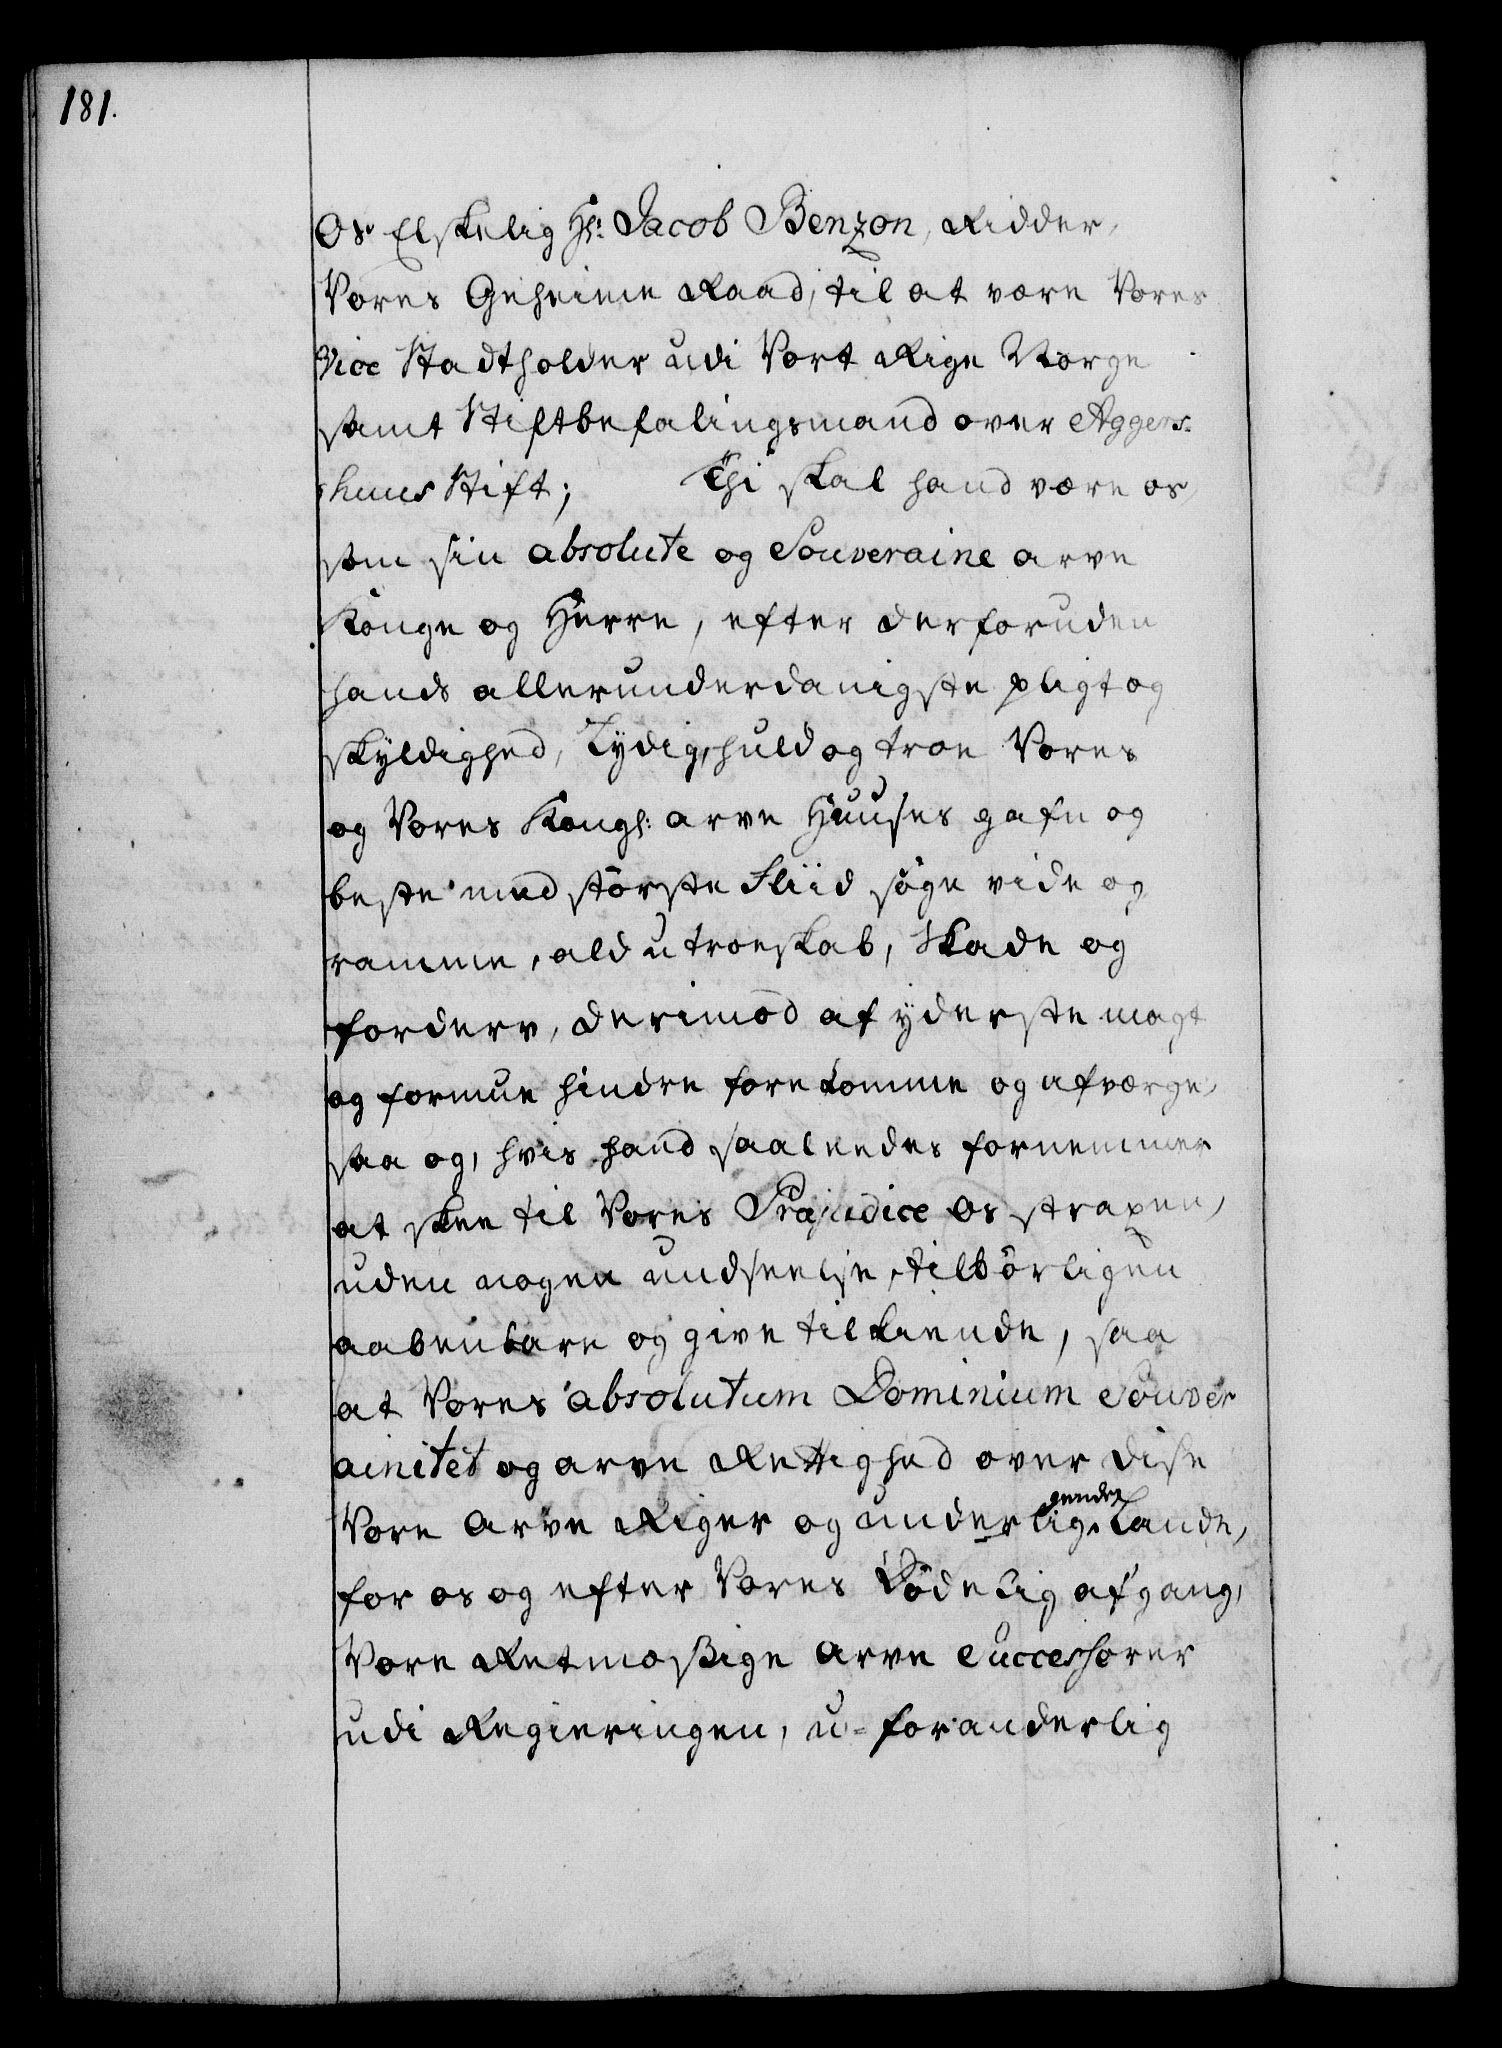 181.
Os Elskelig Hr: Jacob Benzon, Ridder,
Vores Geheime Raad, til at være Vores
Vice Stadtholder udi Vort Rige Norge
samt Stiftbefalingsmand over Aggers-
huus Stift; Thi skal hand være os,
som sin absolute og Souveraine arve
Konge og Herre, efter derforuden
hands allerunderdanigste pligt og
skÿldighed, Lÿdig, huld og troe Vores
og Vores Kongl: arve Huuses gafn og
beste med störste Fliid söge vide og
ramme, ald utroeskab, Skade og
forderv, derimod af ÿderste magt
og formue hindre forekomme og afværge,
saa og, hvis hand saaleedes fornemmer
at skee til Vores Præjudice os straxen,
uden nogen undseelse, tilbörligen
aabenbare og give tilkiende, saa
at Vores absolutum Dominium Souver
ainitet og arve Rettighed over disse
Vore Arve Riger og underliggendes Lande,
for os og efter Vores Dödelig afgang,
Vore Retmæssige Arve Successorer
udi Regieringen, u-foranderlig